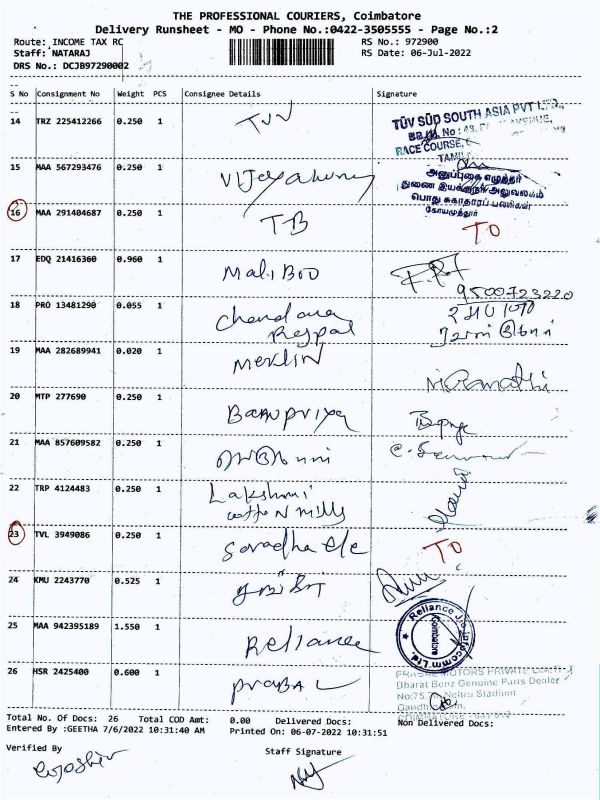 THE PROFESSIONAL COURIERS, Coimbatore
Delivery Runsheet - MO - Phone No.:0422-3505555 - Page No.:2
Route: INCOME TAX RC RS No.: 972900
Staff: NATARAJ RS Date: 06-Jul-2022
DRS No.: DCJB97290002
S No Consignment No Weight PCS Consignee Details Signature
14 TRZ 225412266 0.250 1 TUV
TÜV SÜD SOUTH ASIA PVT LTD.,
RACE COURSE,
15 MAA 567293476 0.250 1
துணை இயக்குநர் அலுவலகம்
பொது சுகாதாரப் பணிகள்
கோயமுத்தூர்
16 MAA 291404687 0.250 1 TB TO
17 EDQ 21416360 0.960 1 MaliBoo
9500723220
18 PRO 13481290 0.055 1 Chandana
19 MAA 282689941 0.020 1 Merlin
20 MTP 277690 0.250 1 Banupriya
21 MAA 857609582 0.250 1
22 TRP 4124483 0.250 1 Lakshmi
Cotton Mills
23 TVL 3949086 0.250 1 Saradha TO
24 KMU 2243770 0.525 1
25 MAA 942395189 1.550 1 Reliance
Coimbatore
26 HSR 2425400 0.600 1
MOTORS PRIVATE
Bharat Benz Genuine Parts Dealer
Nehru Stadium
Total No. Of Docs: 26 Total COD Amt: 0.00 Delivered Docs: Non Delivered Docs:
Entered By :GEETHA 7/6/2022 10:31:40 AM Printed On: 06-07-2022 10:31:51
Verified By Staff Signature